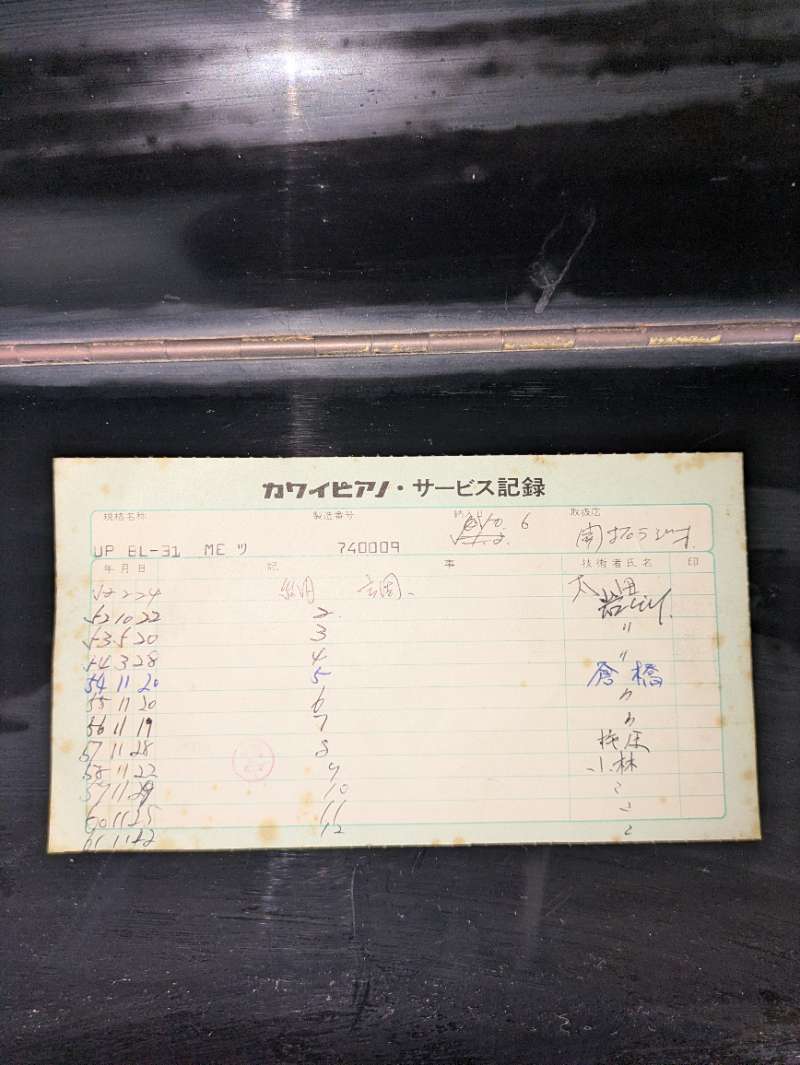 カワイピアノ・サービス記録
規格名称 製造番号 納入日 取扱店
UP BL-31 MEツ 740009 6
年月日 記事 技術者氏名 印
52 10 22 2 岩
53 5 20 3 〃
54 3 28 4 〃
54 11 20 5 倉橋
55 11 20 6 〃
56 11 19 7 〃
57 11 28 8
58 11 22 9 小林
59 11 29 10 〃
60 11 25 11 〃
61 11 22 12 〃